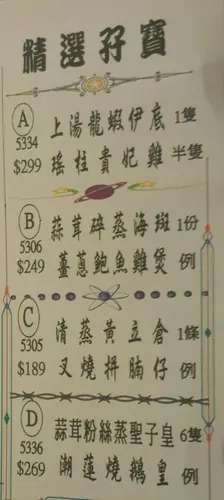 精選孖寶
A
5334
$299
上湯龍蝦伊底 1隻
瑤柱貴妃雞 半隻
B
5306
$249
蒜茸碎蒸海斑 1份
薑蔥鮑魚雞煲 例
C
5305
$189
清蒸黃立倉 1條
叉燒拼腩仔 例
D
5336
$269
蒜茸粉絲蒸聖子皇 6隻
潮蓮燒鵝皇 例